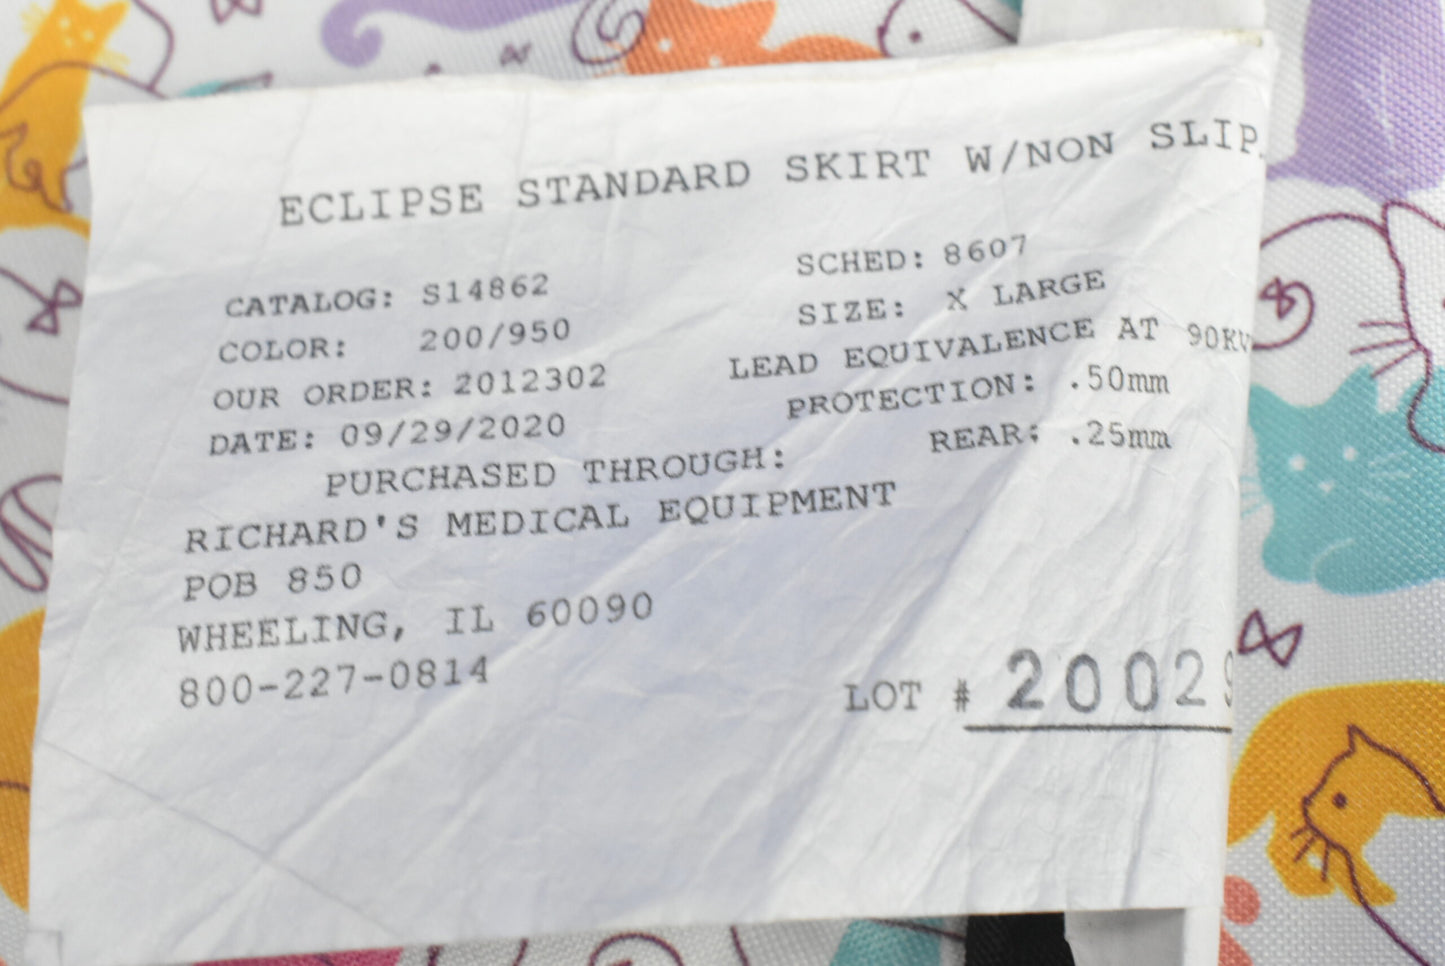 ECLIPSE STANDARD SKIRT W/NON SLIP
CATALOG: S14862 SCHED: 8607
COLOR: 200/950 SIZE: X LARGE
OUR ORDER: 2012302 LEAD EQUIVALENCE AT 90KV
DATE: 09/29/2020 PROTECTION: .50mm
PURCHASED THROUGH: REAR: .25mm
RICHARD'S MEDICAL EQUIPMENT
POB 850
WHEELING, IL 60090
800-227-0814
LOT # 20029